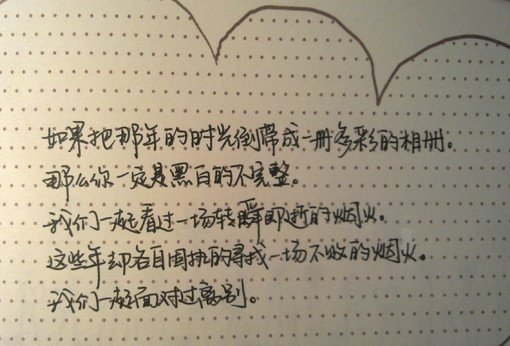 如果把那年的时光倒带成一册多彩的相册。
那么你一定是黑白的不完整。
我们一起看过一场转瞬即逝的烟火。
这些年却各自固执的寻找一场不败的烟火。
我们一起面对过离别。